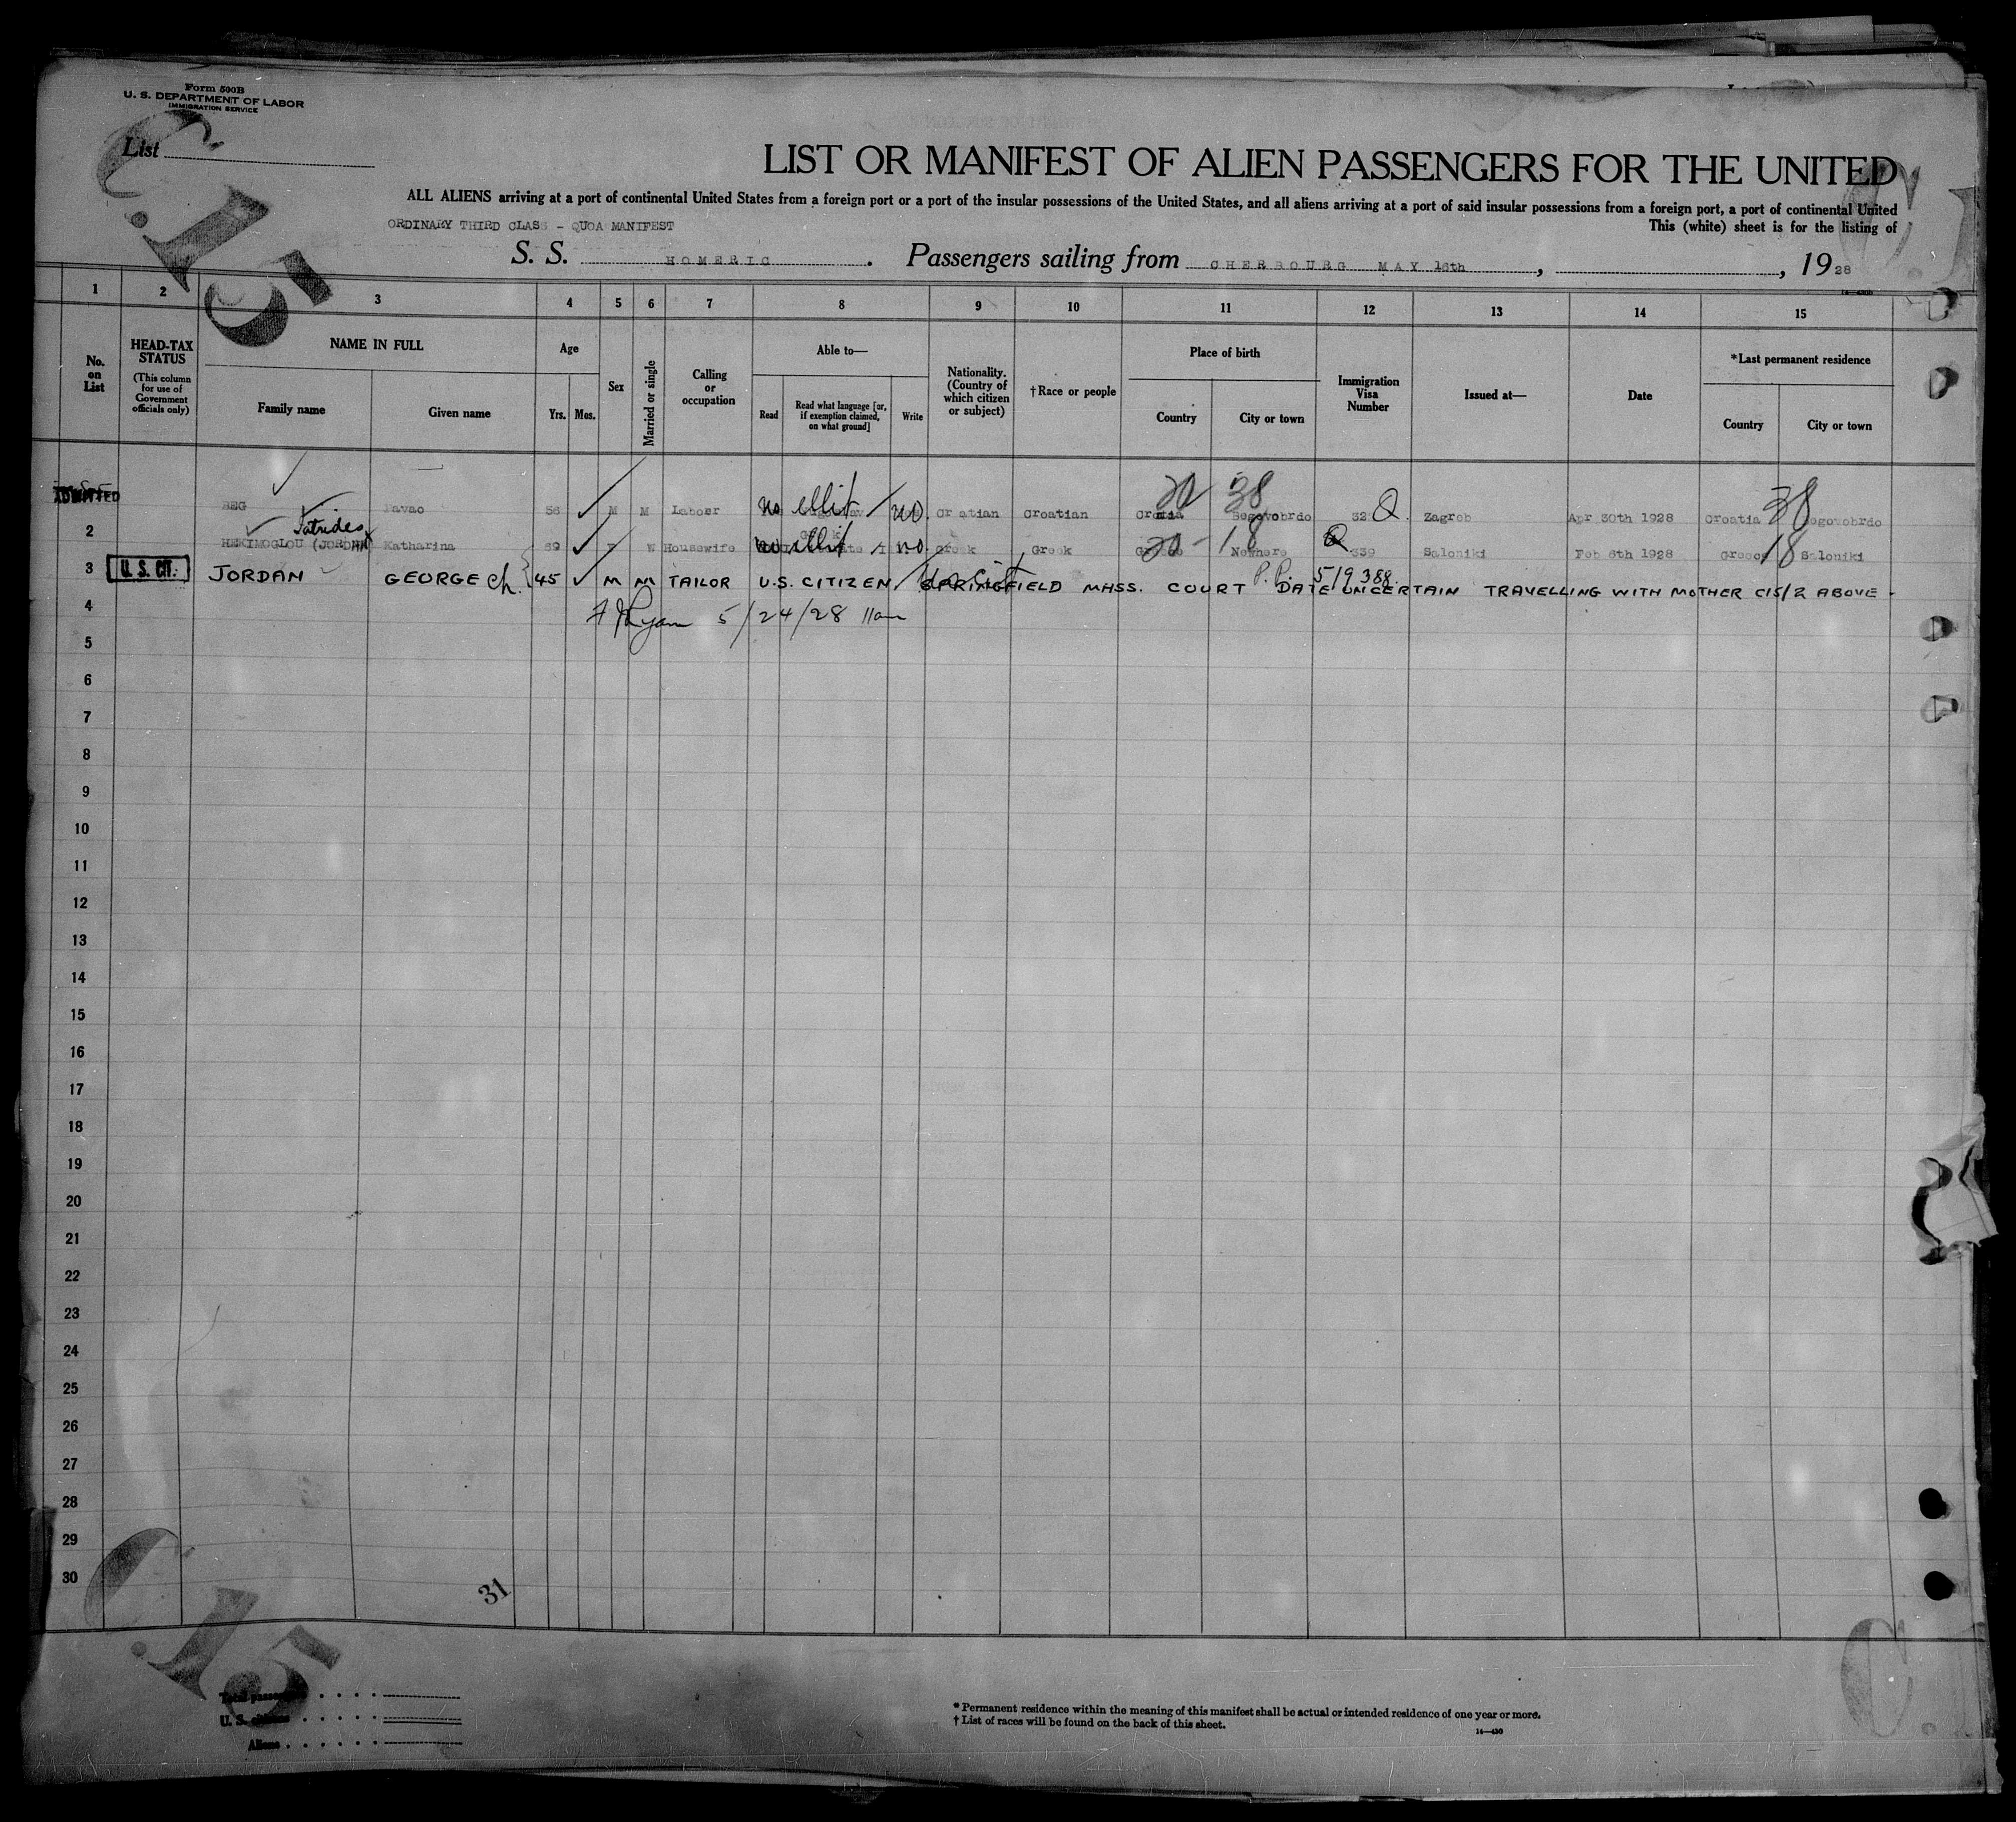 Form 500B
U. S. DEPARTMENT OF LABOR
IMMIGRATION SERVICE
List
LIST OR MANIFEST OF ALIEN PASSENGERS FOR THE UNITED
ALL ALIENS arriving at a port of continental United States from a foreign port or a port of the insular possessions of the United States, and all aliens arriving at a port of said insular possessions from a foreign port, a port of continental United
ORDINARY THIRD CLASS - QUOA MANIFEST
This (white) sheet is for the listing of
S. S. HOMERIC. Passengers sailing from CHERBOURG MAY 16th, , 1928
1 2 3 4 5 6 7 8 9 10 11 12 13 14 15
No. on List
HEAD-TAX STATUS
(This column for use of Government officials only)
NAME IN FULL
Family name Given name
Age
Yrs. Mos.
Sex
Married or single
Calling or occupation
Able to—
Read
Read what language [or, if exemption claimed, on what ground]
Write
Nationality. (Country of which citizen or subject)
†Race or people
Place of birth
Country City or town
Immigration Visa Number
Issued at—
Date
*Last permanent residence
Country City or town
ADMITTED
BEG Pavao 56 M M Laboer no ellit no. Croatian Croatian 20 38 Croatia Begovobrdo 32 Q. Zagreb Apr 30th 1928 Croatia 38 Begovobrdo
2 Patrides
HEKIMOGLOU (JORDAN Katharina 69 F W Housewife no ellit no. Greek Greek 20 - 18 Newhere Q 339 Saloniki Feb 6th 1928 Greece 18 Saloniki
3 U. S. CIT. JORDAN GEORGE Ch. 45 M M TAILOR U.S. CITIZEN SPRINGFIELD MASS. COURT DATE UNCERTAIN TRAVELLING WITH MOTHER C15/2 ABOVE -
P. P. 519388.
4
5/24/28 11am
5
6
7
8
9
10
11
12
13
14
15
16
17
18
19
20
21
22
23
24
25
26
27
28
29
30
31
Total passengers
U. S. citizens
Aliens
* Permanent residence within the meaning of this manifest shall be actual or intended residence of one year or more.
† List of races will be found on the back of this sheet.
14—430